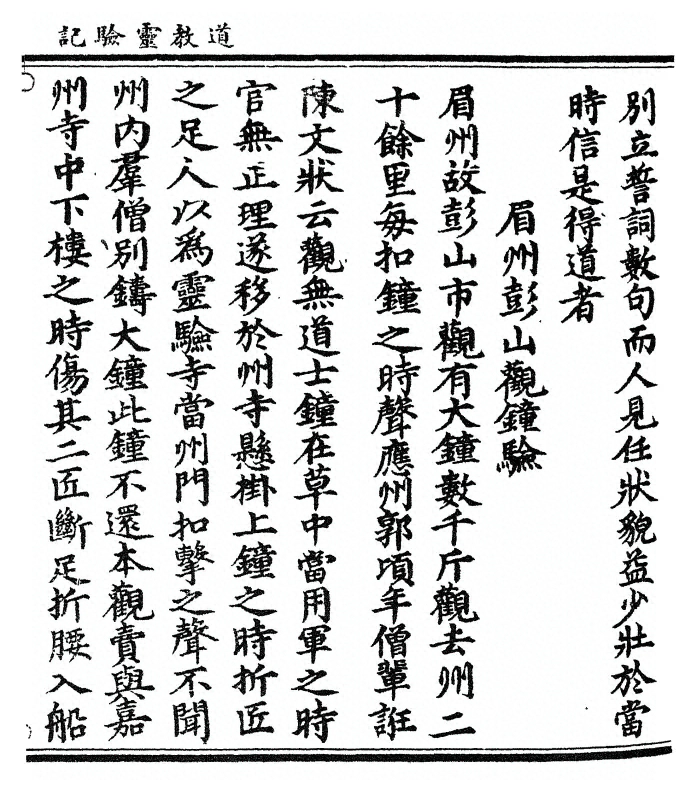 道教靈驗記
別立誓詞數句而人見任狀貌益少壯於當
時信是得道者
眉州彭山觀鐘驗
眉州故彭山市觀有大鐘數千斤觀去州二
十餘里每扣鐘之時聲應州郭頃年僧輩誑
陳文狀云觀無道士鐘在草中當用軍之時
官無正理遂移於州寺懸掛上鐘之時折匠
之足人以為靈驗寺當州門扣擊之聲不聞
州內羣僧別鑄大鐘此鐘不還本觀賣與嘉
州寺中下樓之時傷其二匠斷足折腰入船